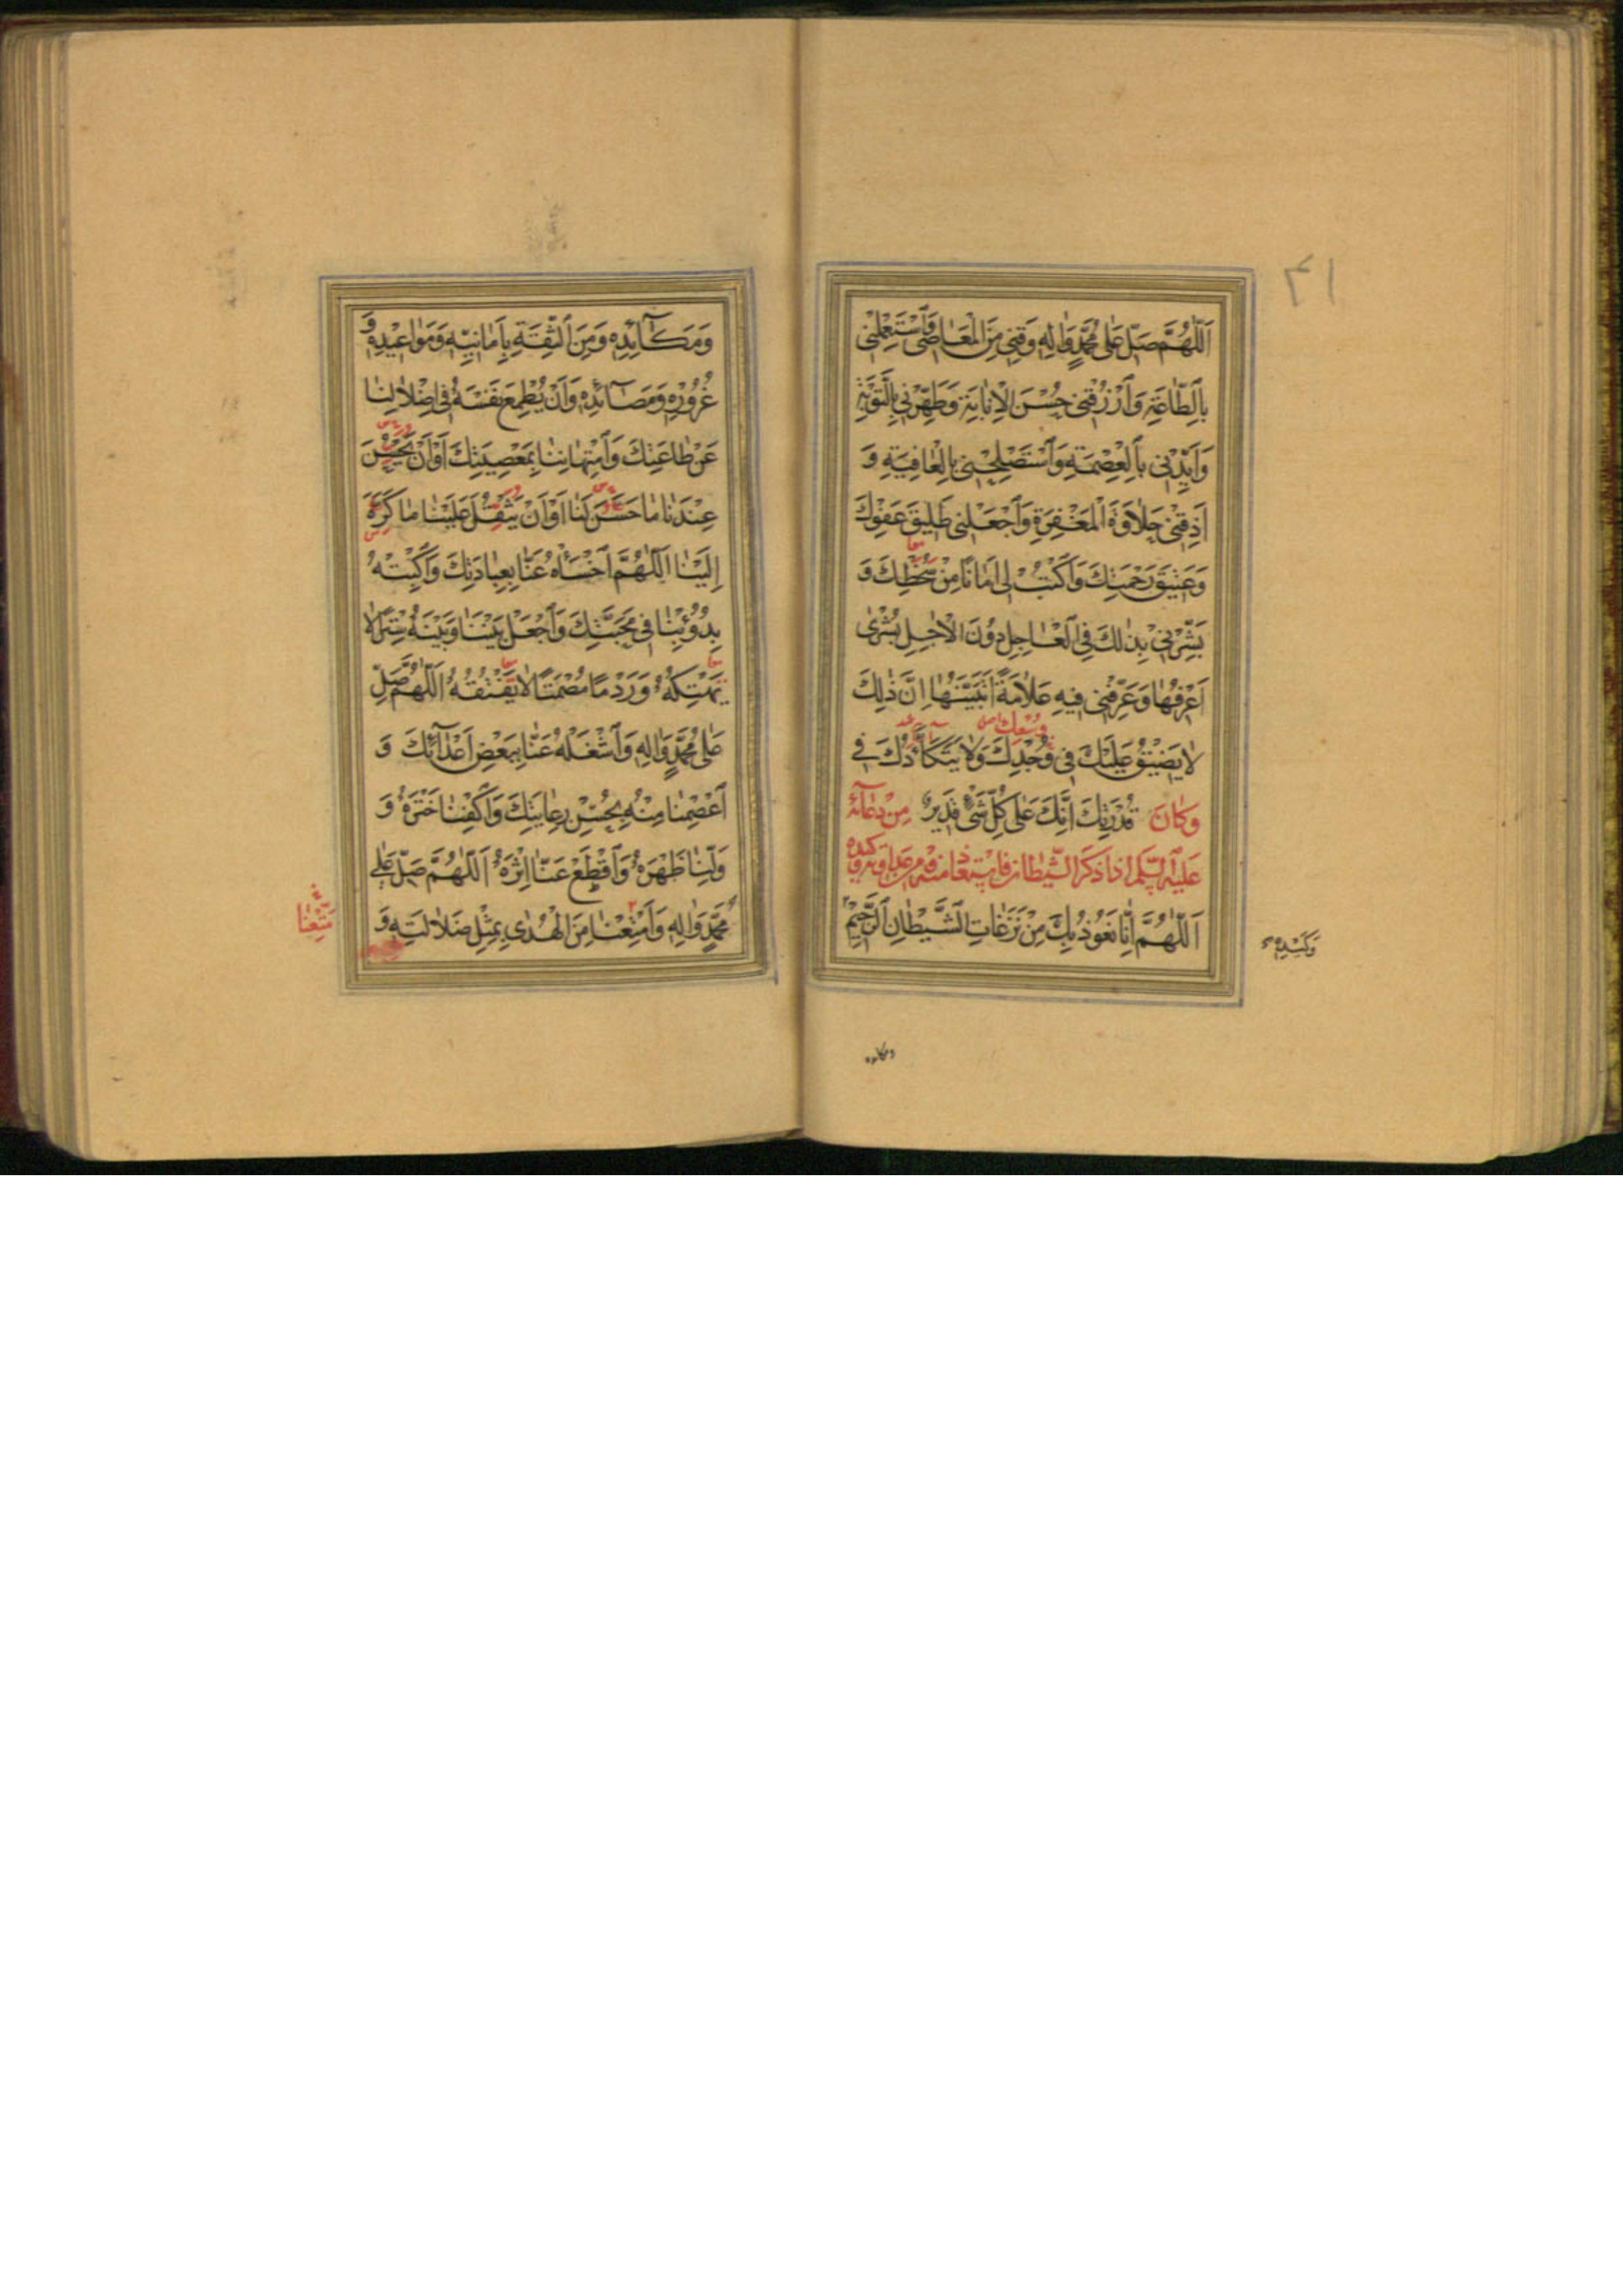 ۴۱
اَللّٰهُمَّ صَلِّ عَلٰى مُحَمَّدٍ وَاٰلِهِ وَقِنِى مِنَ الْمَعَاصِى وَاسْتَعْمِلْنِى
بِالطَّاعَةِ وَارْزُقْنِى حُسْنَ الْاِنَابَةِ وَطَهِّرْنِى بِالتَّوْبَةِ
وَاَيِّدْنِى بِالْعِصْمَةِ وَاسْتَصْلِحْنِى بِالْعَافِيَةِ وَ
اَذِقْنِى حَلَاوَةَ الْمَغْفِرَةِ وَاجْعَلْنِى طَلِيقَ عَفْوِكَ
وَعَتِيقَ رَحْمَتِكَ وَاكْتُبْ لِى اَمَانًا مِنْ سَخَطِكَ وَ
بَشِّرْنِى بِذٰلِكَ فِى الْعَاجِلِ دُونَ الْاٰجِلِ بُشْرٰى
اَعْرِفُهَا وَعَرِّفْنِى فِيهِ عَلَامَةً اَتَبَيَّنُهَا اِنَّ ذٰلِكَ
وُسْعِكَ
لَا يَضِيقُ عَلَيْكَ فِى وُجْدِكَ وَلَا يَتَكَأَّدُكَ فِى
قُدْرَتِكَ اِنَّكَ عَلٰى كُلِّ شَىْءٍ قَدِيرٌ وَكَانَ مِنْ دُعَائِهِ
عَلَيْهِ السَّلَام اِذَا ذَكَرَ الشَّيْطَانَ فَاسْتَعَاذَ مِنْهُ وَمِنْ عَدَاوَتِهِ وَكَيْدِهِ
اَللّٰهُمَّ اِنَّا نَعُوذُ بِكَ مِنْ نَزَغَاتِ الشَّيْطَانِ الرَّجِيمِ
وَكَيْدِهِ
ومكايده
وَمَكَائِدِهِ وَمِنَ الثِّقَةِ بِاَمَانِيِّهِ وَمَوَاعِيدِهِ وَ
غُرُورِهِ وَمَصَائِدِهِ وَاَنْ يُطْمِعَ نَفْسَهُ فِى اِضْلَالِنَا
عَنْ طَاعَتِكَ وَامْتِهَانِنَا بِمَعْصِيَتِكَ اَوْ اَنْ يَحْسُنَ
عِنْدَنَا مَا حَسَّنَ لَنَا اَوْ اَنْ يَثْقُلَ عَلَيْنَا مَا كَرَّهَ
اِلَيْنَا اَللّٰهُمَّ اخْسَأْهُ عَنَّا بِعِبَادَتِكَ وَاكْبِتْهُ
بِدُؤُبِنَا فِى مَحَبَّتِكَ وَاجْعَلْ بَيْنَنَا وَبَيْنَهُ سِتْرًا لَا
يَهْتِكُهُ وَرَدْمًا مُصْمَتًا لَا يَفْتُقُهُ اَللّٰهُمَّ صَلِّ
عَلٰى مُحَمَّدٍ وَاٰلِهِ وَاشْغَلْهُ عَنَّا بِبَعْضِ اَعْدَائِكَ وَ
اعْصِمْنَا مِنْهُ بِحُسْنِ رِعَايَتِكَ وَاكْفِنَا خَتْرَهُ وَ
وَلِّنَا ظَهْرَهُ وَاقْطَعْ عَنَّا اِثْرَهُ اَللّٰهُمَّ صَلِّ عَلٰى
مُحَمَّدٍ وَاٰلِهِ وَاَمْتِعْنَا مِنَ الْهُدٰى بِمِثْلِ ضَلَالَتِهِ وَ
مَتِّعْنَا